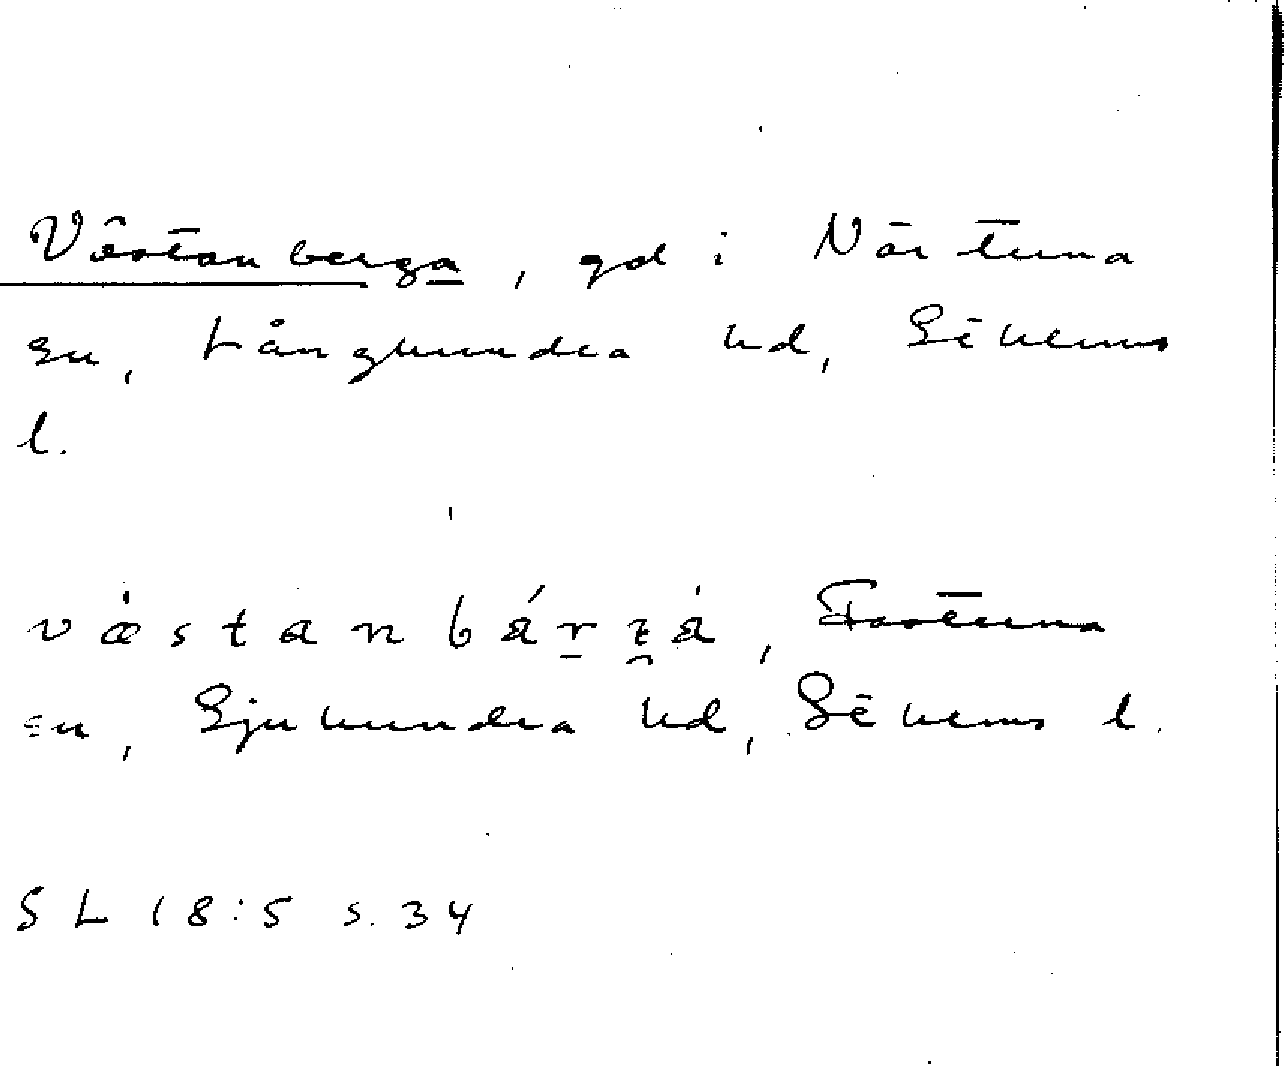 Västanberga, gd i Närtuna
sn, Långhundra hd, Sthlms
l.
västanbárza, Fasterna
sn, Sjuhundra hd, Sthlms l.
SL 18:5 s. 34